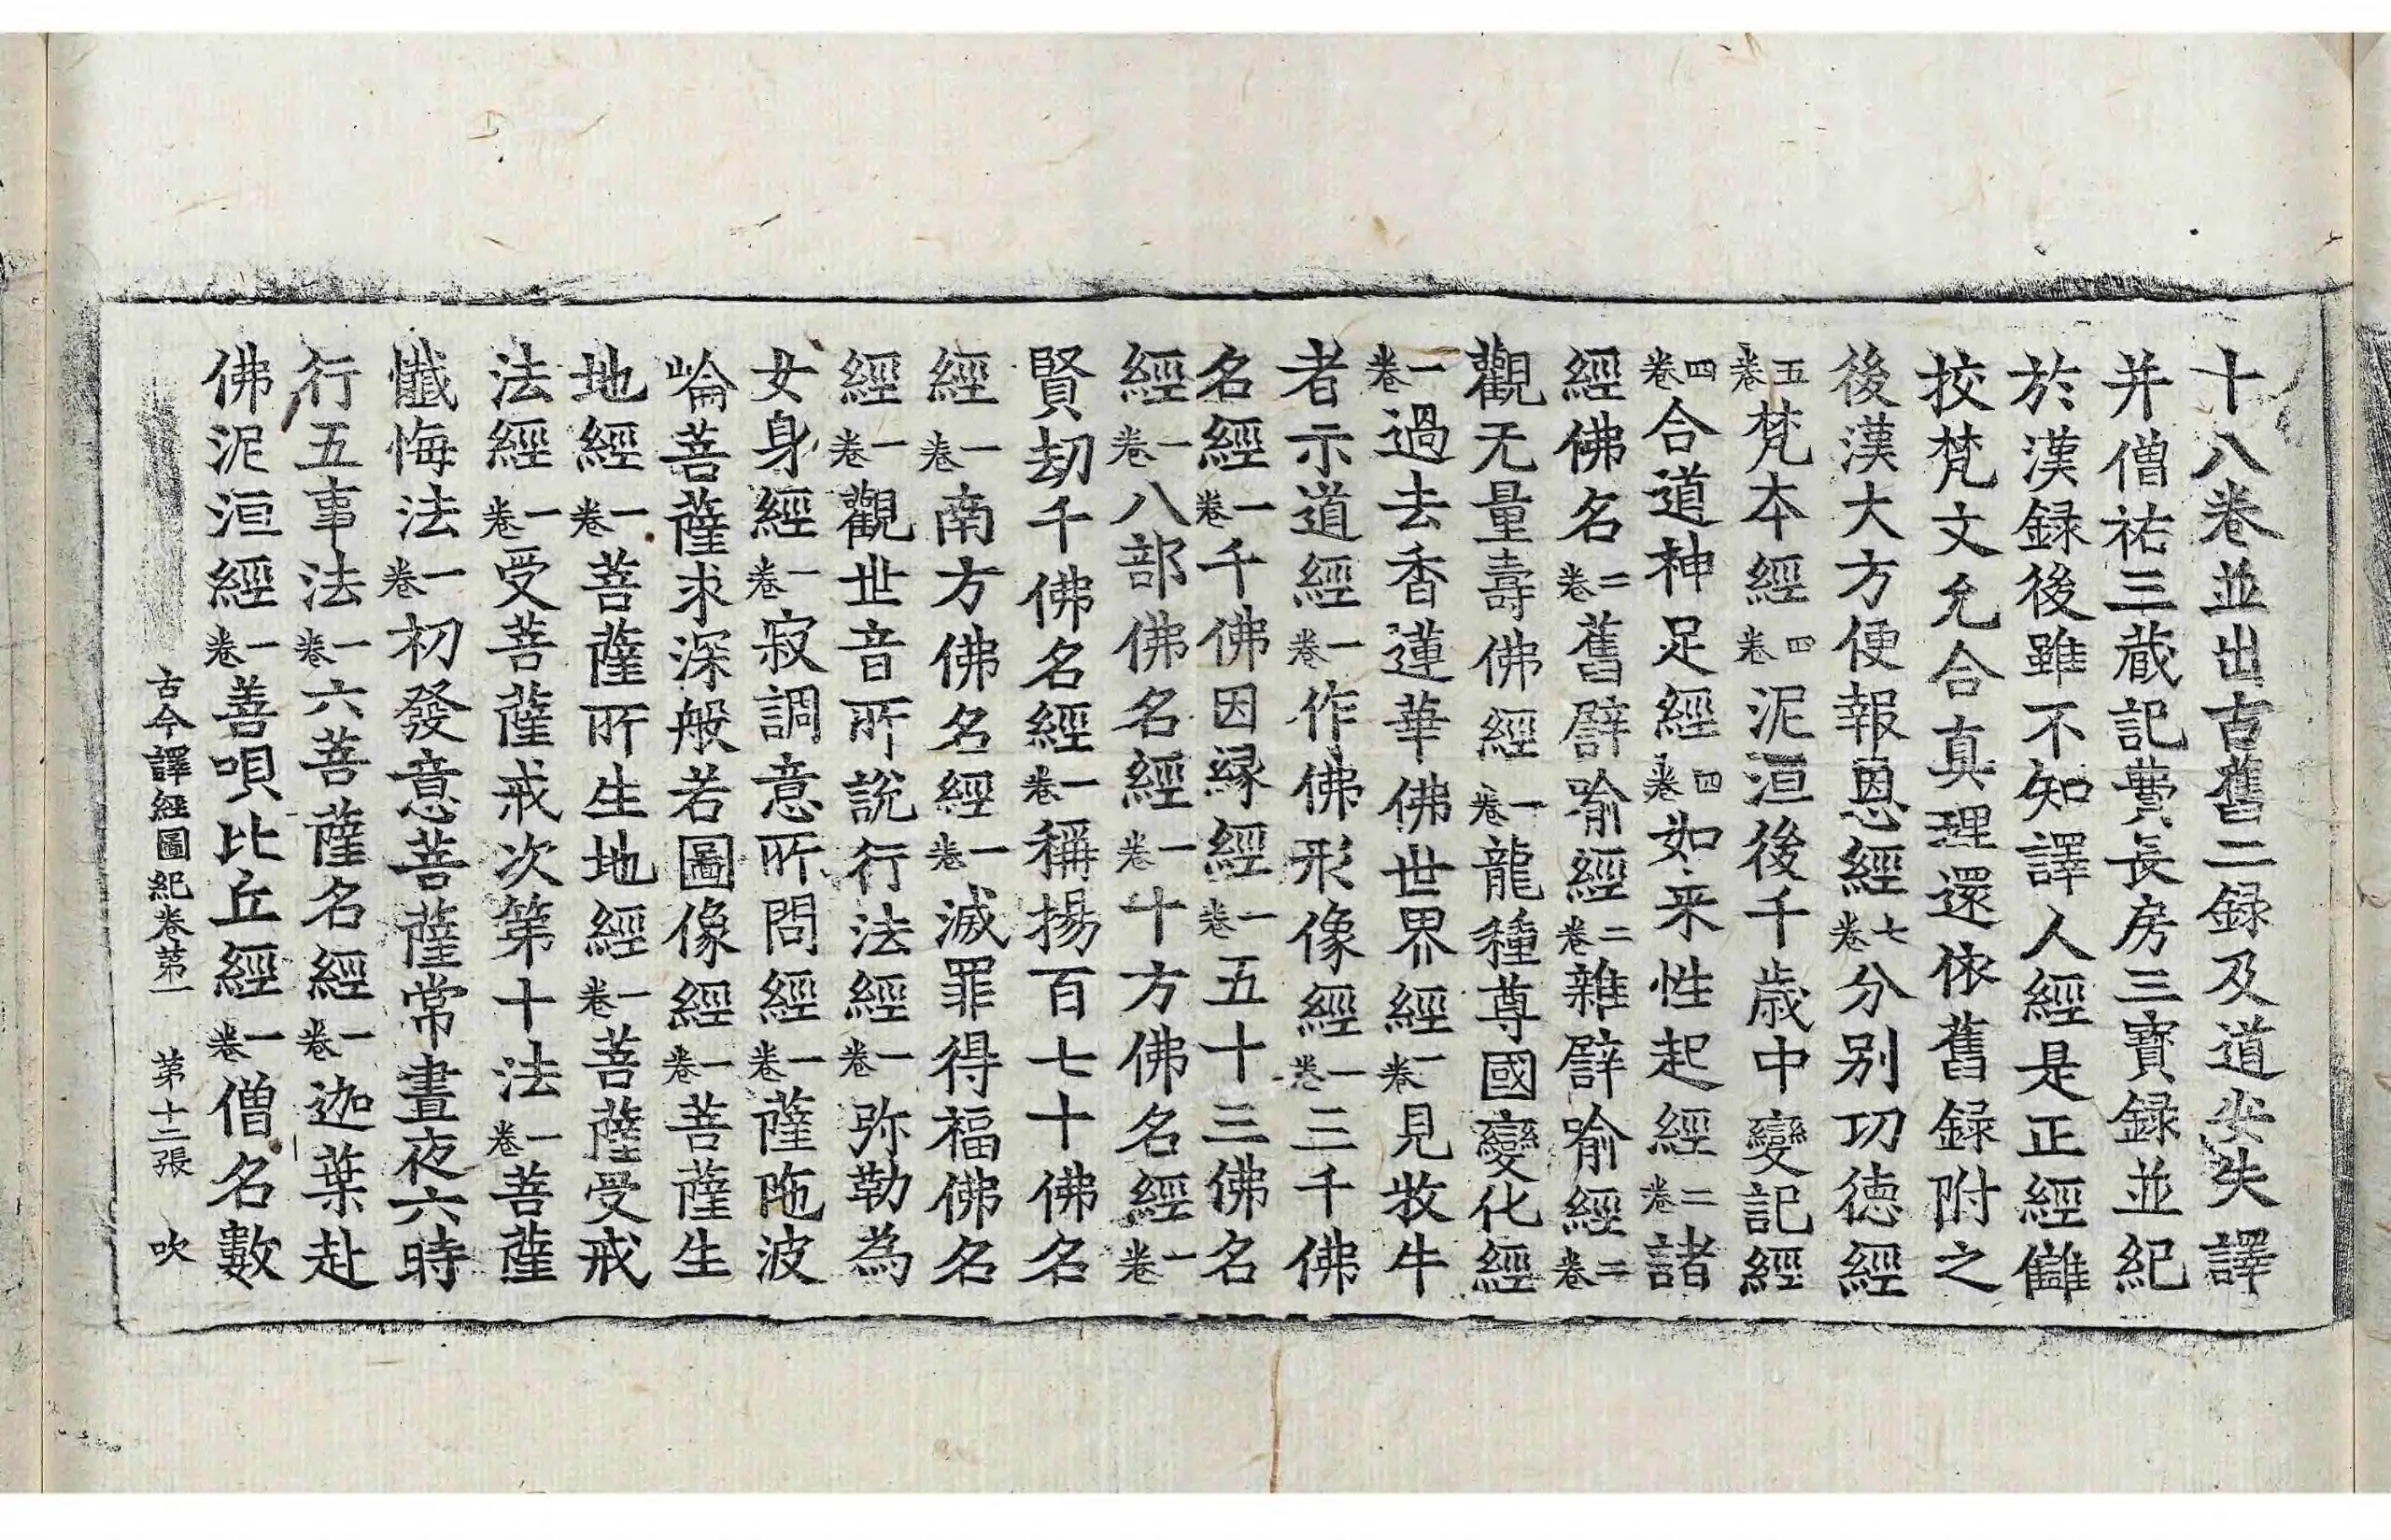 十八卷並出古舊二録及道安失譯
并僧祐三藏記費長房三寶録並紀
於漢録後雖不知譯人經是正經讎
挍梵文允合真理還依舊録附之
後漢大方便報恩經七卷分別功徳經
五卷梵本經四卷泥洹後千歳中變記經
四卷合道神足經四卷如来性起經二卷諸
經佛名二卷舊譬喻經二卷雜譬喻經二卷
觀无量壽佛經一卷龍種尊國變化經
一卷過去香蓮華佛世界經一卷見牧牛
者示道經一卷作佛形像經一卷三千佛
名經一卷千佛因縁經一卷五十三佛名
經一卷八部佛名經一卷十方佛名經一卷
賢劫千佛名經一卷稱揚百七十佛名
經一卷南方佛名經一卷滅罪得福佛名
經一卷觀世音所說行法經一卷弥勒為
女身經一卷寂調意所問經一卷薩陁波
崘菩薩求深般若圖像經一卷菩薩生
地經一卷菩薩所生地經一卷菩薩受戒
法經一卷受菩薩戒次第十法一卷菩薩
懺悔法一卷初發意菩薩常晝夜六時
行五事法一卷六菩薩名經一卷迦葉赴
佛泥洹經一卷善唄比丘經一卷僧名數
古今譯經圖紀卷第一　第十二張　吹